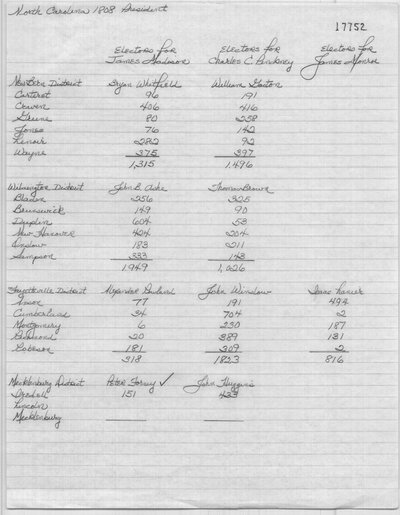 North Carolina 1808 President
17752
Electors for Electors for Electors for
James Madison Charles C. Pinckney James Monroe
New Bern District Bryan Whitfield William Gaston
Carteret 96 191
Craven 406 416
Greene 80 258
Jones 76 142
Lenoir 282 92
Wayne 375 397
1,315 1,496
Wilmington District John B. Ashe Thomas Brown
Bladen 256 325
Brunswick 149 90
Duplin 604 53
New Hanover 424 204
Onslow 183 211
Sampson 333 143
1,949 1,026
Fayetteville District Alexander Rowland John Winslow Isaac Lanier
Anson 77 191 494
Cumberland 34 704 2
Montgomery 6 230 187
Richmond 20 389 131
Robeson 181 309 2
318 1823 816
Mecklenburg District Peter Forney ✓ John Huggins
Iredell 151 433
Lincoln
Mecklenburg